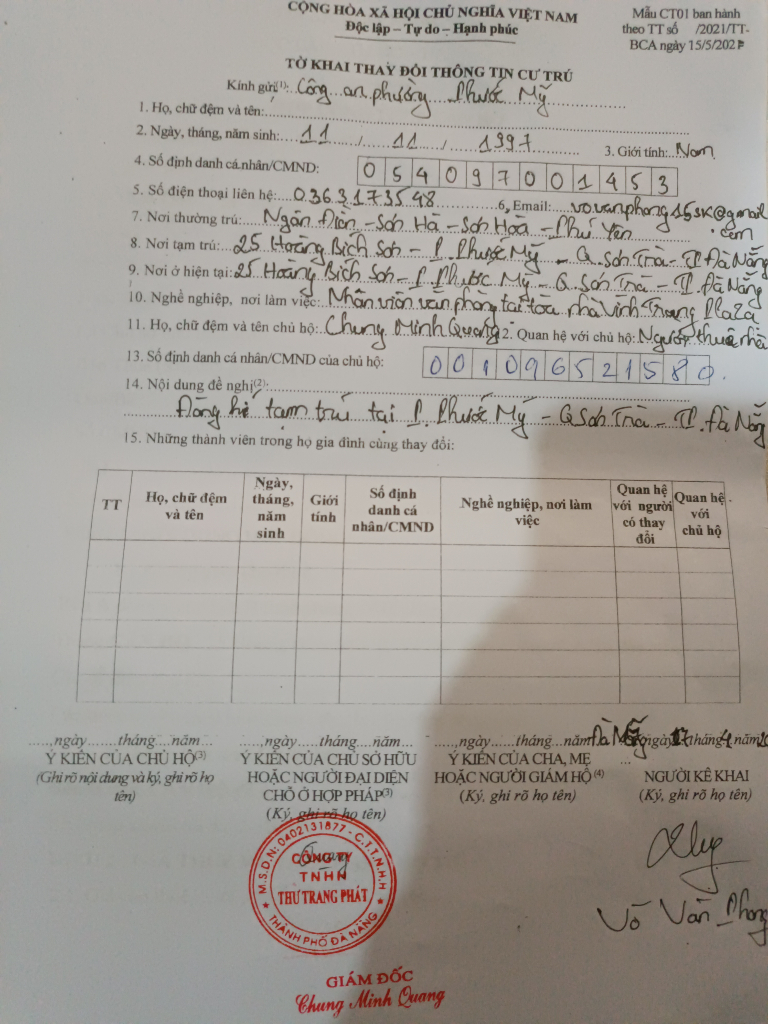 CỘNG HÒA XÃ HỘI CHỦ NGHĨA VIỆT NAM
Độc lập – Tự do – Hạnh phúc
Mẫu CT01 ban hành
theo TT số /2021/TT-
BCA ngày 15/5/2021
TỜ KHAI THAY ĐỔI THÔNG TIN CƯ TRÚ
Kính gửi(1): Công an phường Phước Mỹ
1. Họ, chữ đệm và tên:
2. Ngày, tháng, năm sinh: 11 / 11 / 1997 3. Giới tính: Nam
4. Số định danh cá nhân/CMND: 054097001453
5. Số điện thoại liên hệ: 0363173548 6, Email: vovanphong15sk@gmail
.com
7. Nơi thường trú: Ngân Điền – Sơn Hà – Sơn Hoà – Phú Yên
8. Nơi tạm trú: 25 Hoàng Bích Sơn – P. Phước Mỹ – Q. Sơn Trà – TP. Đà Nẵng
9. Nơi ở hiện tại: 25 Hoàng Bích Sơn – P. Phước Mỹ – Q. Sơn Trà – TP. Đà Nẵng
10. Nghề nghiệp, nơi làm việc: Nhân viên văn phòng tại tòa nhà Vĩnh Trung Plaza
11. Họ, chữ đệm và tên chủ hộ: Chung Minh Quang 2. Quan hệ với chủ hộ: Người thuê nhà
13. Số định danh cá nhân/CMND của chủ hộ: 001096521580
14. Nội dung đề nghị(2):
Đăng ký tạm trú tại P. Phước Mỹ – Q Sơn Trà – TP. Đà Nẵng
15. Những thành viên trong hộ gia đình cùng thay đổi:
TT Họ, chữ đệm và tên Ngày, tháng, năm sinh Giới tính Số định danh cá nhân/CMND Nghề nghiệp, nơi làm việc Quan hệ với người có thay đổi Quan hệ với chủ hộ
.....,ngày.......tháng....năm.......
Ý KIẾN CỦA CHỦ HỘ(3)
(Ghi rõ nội dung và ký, ghi rõ họ
tên)
.....,ngày......tháng....năm.......
Ý KIẾN CỦA CHỦ SỞ HỮU
HOẶC NGƯỜI ĐẠI DIỆN
CHỖ Ở HỢP PHÁP(3)
(Ký, ghi rõ họ tên)
.....,ngày......tháng....năm
Ý KIẾN CỦA CHA, MẸ
HOẶC NGƯỜI GIÁM HỘ (4)
(Ký, ghi rõ họ tên)
Đà Nẵng ngày tháng 4 năm
...
NGƯỜI KÊ KHAI
(Ký, ghi rõ họ tên)
M.S.D.N: 0402131877 - C.T.T.N.H.H
CÔNG TY
TNHH
THƯ TRANG PHÁT
THÀNH PHỐ ĐÀ NẴNG
Võ Văn Phong
GIÁM ĐỐC
Chung Minh Quang